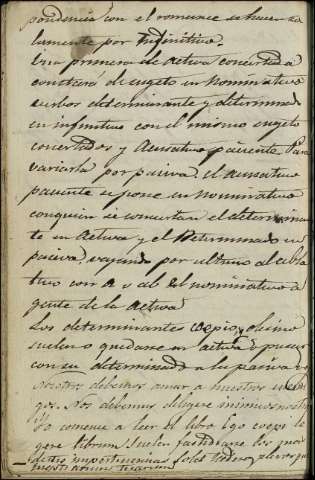 pondencia con el romance se hacen so
lamente por Infinitivo.
Una primera de Activa concertada
constará de sugeto en Nominativo
verbos determinante y determinado
en infinitivo con el mismo sugeto
concertados y Acusativo paciente Para
variarla por pasiva. el acusativo
paciente se pone en Nominativo
con quien se concertara el determinan
te en Activa y el Determinado en
pasiva, viajando por ultimo al abla
tivo con a o ab el nominativo a
gente de la Activa
Los determinantes cæpio, y desino
suelen quedarse en activa y pasar
con su determinado a la pasiva
Nosotros debemos amar a nuestros enemi
gos. Nos debemus diligere inimicos nostros
Yo comence a leer el libro Ego coepi le
gere librum. Suelen fastidiarse los
de tus impertinencias Solet